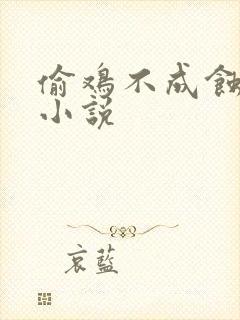 偷鸡不成蚀
小说
哀蓝